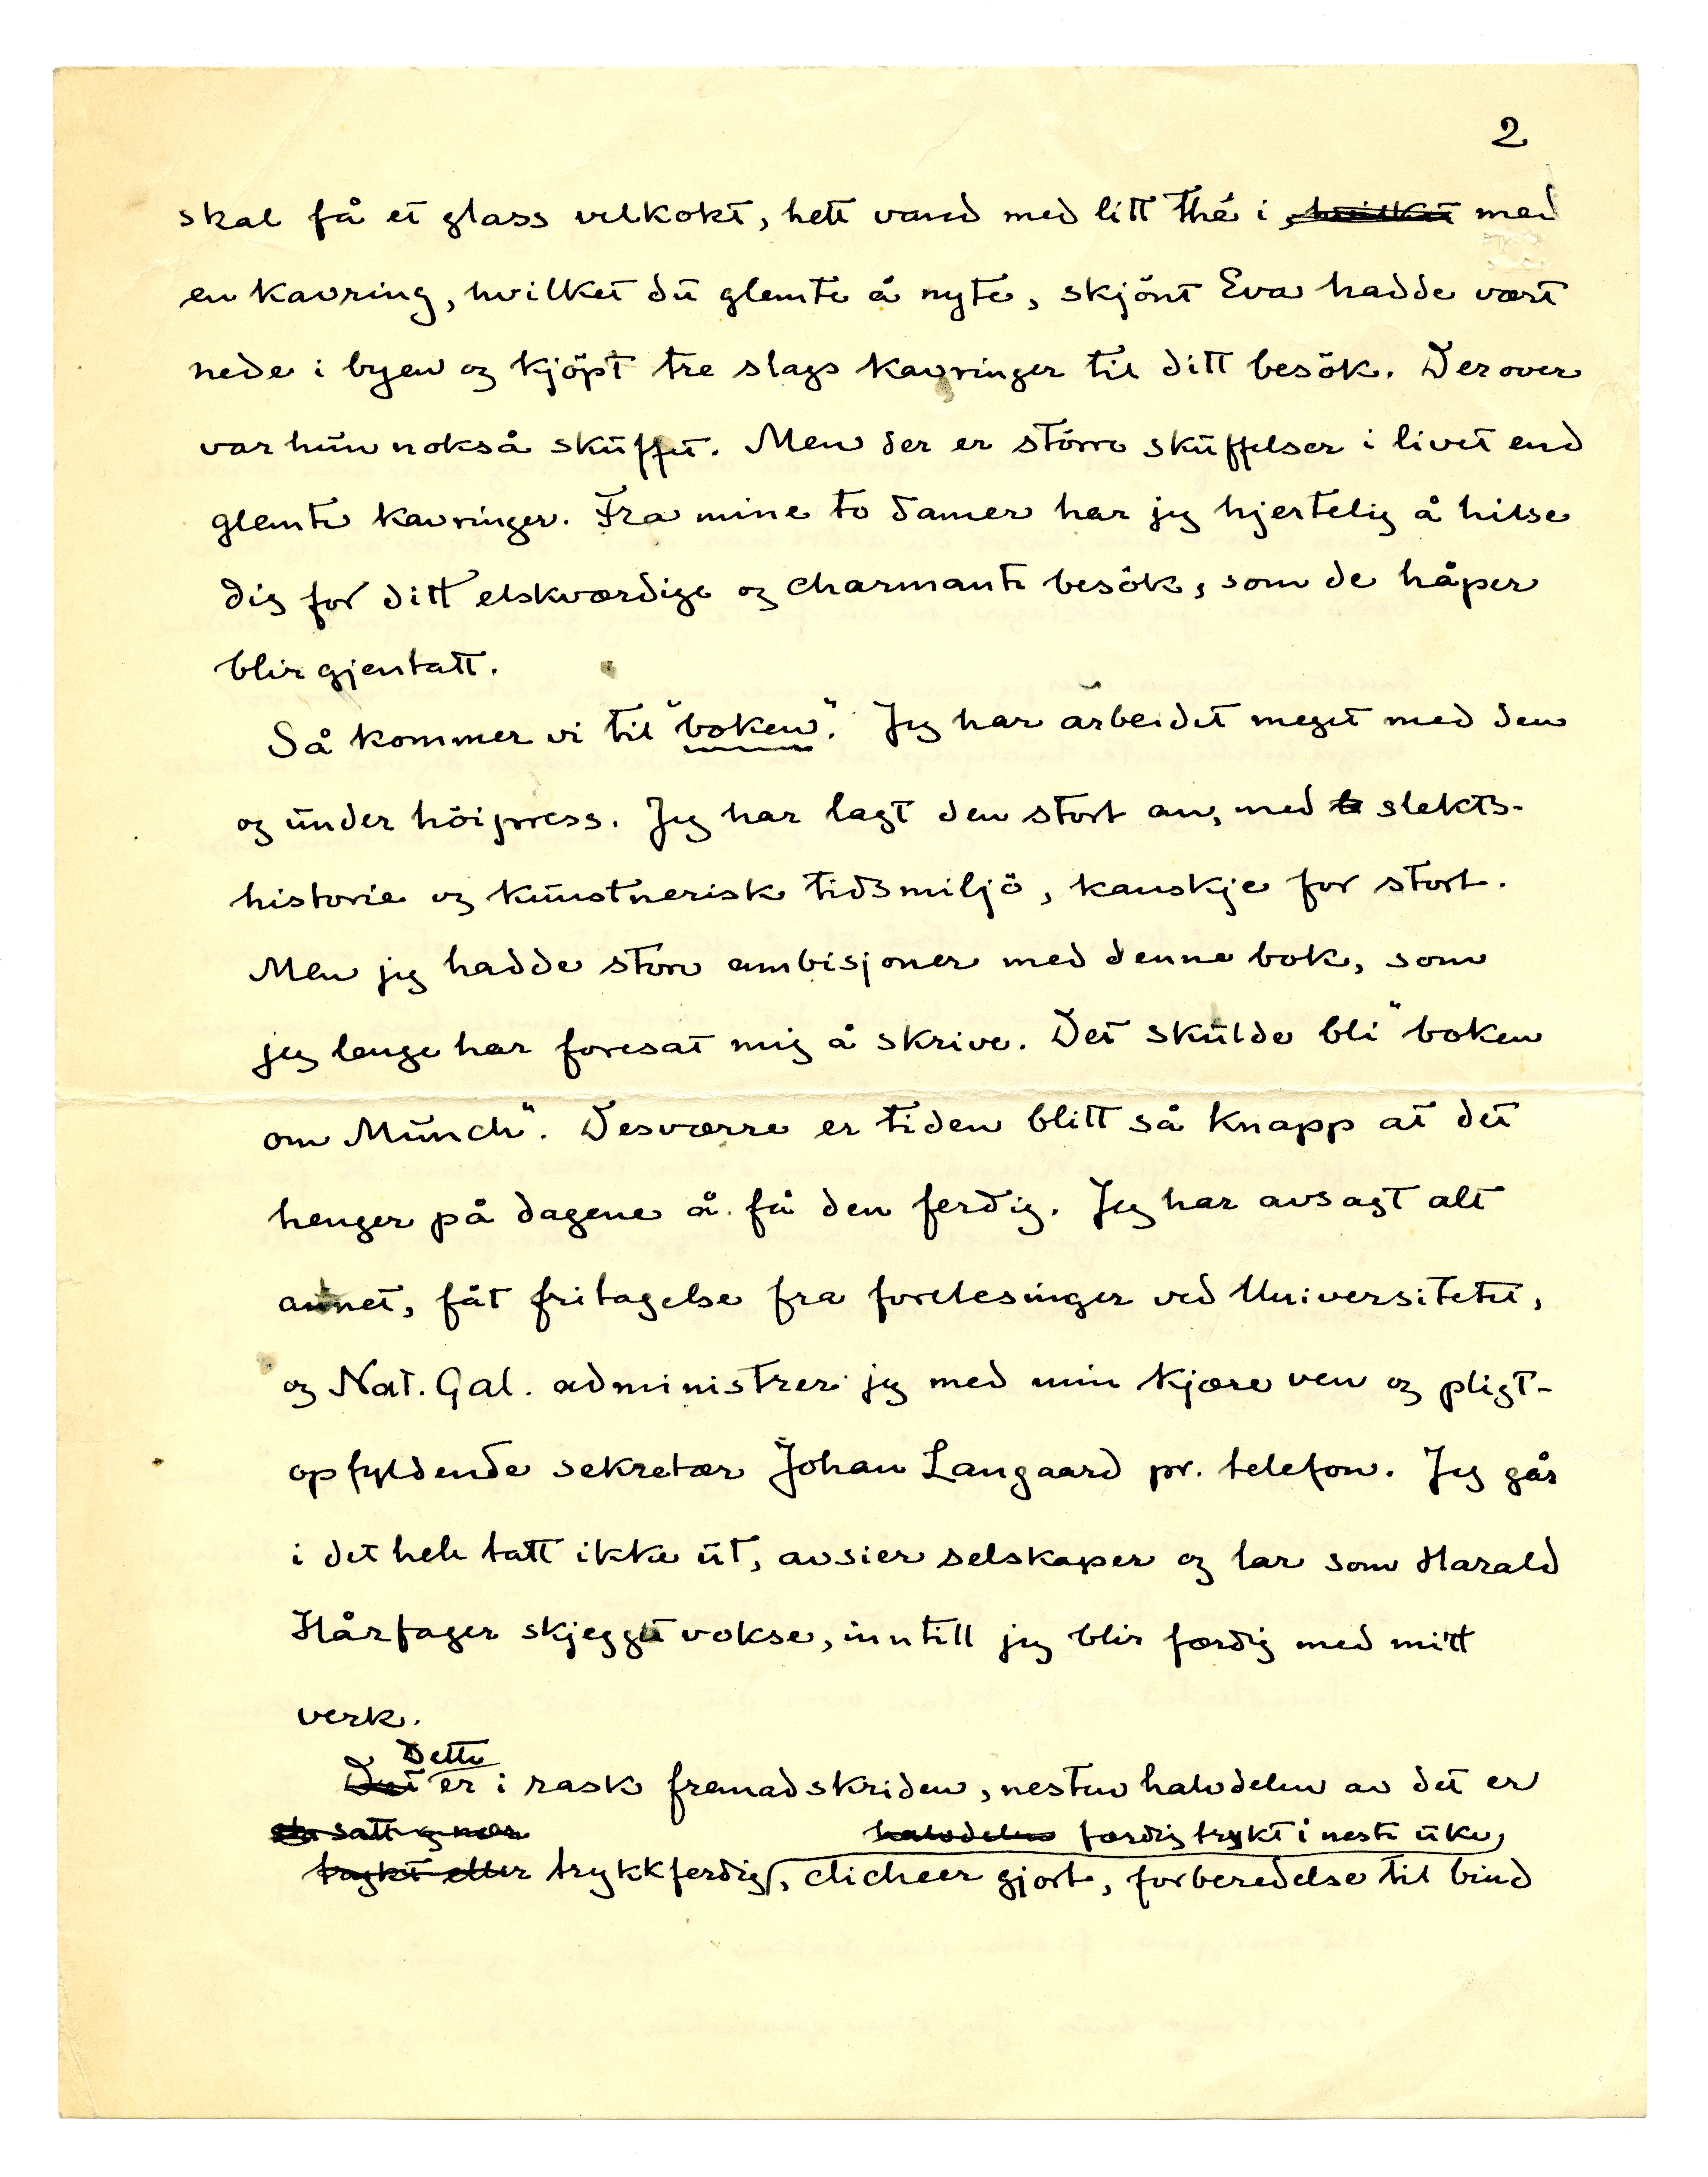 2
skal få et glass velkokt, hett vand med litt thé i, hvilket med
en kavring, hvilket du glemte å nyte, skjönt Eva hadde vært
nede i byen og kjöpt tre slags kavringer til ditt besök. Derover
var hun nokså skuffet. Men der er större skuffelser i livet end
glemte kavringer. Fra mine to damer har jeg hjertelig å hilse
dig for ditt elskværdige og charmante besök, som de håper
blir gjentatt.
Så kommer vi til "boken". Jeg har arbeidet meget med den
og under höipress. Jeg har lagt den stort an, med slekts-
historie og kunstnerisk tidsmiljö, kanskje for stort.
Men jeg hadde store ambisjoner med denne bok, som
jeg lenge har foresat mig å skrive. Det skulde bli "boken
om Munch". Desværre er tiden blitt så knapp at det
henger på dagene å få den ferdig. Jeg har avsagt alt
annet, fåt fritagelse fra forelesinger ved Universitetet,
og Nat. Gal. administrer jeg med min kjære ven og pligt-
opfyldende sekretær Johan Langaard pr. telefon. Jeg går
i det hele tatt ikke ut, avsier selskaper og lar som Harald
Hårfager skjegget vokse, inntill jeg blir færdig med mitt
verk.
Dette
Det er i rask fremadskriden, nesten halvdelen av det er
satt og nær halvdelen færdig trykt i neste uke,
trykt eller trykkferdig, clicheer gjort, forberedelse til bind